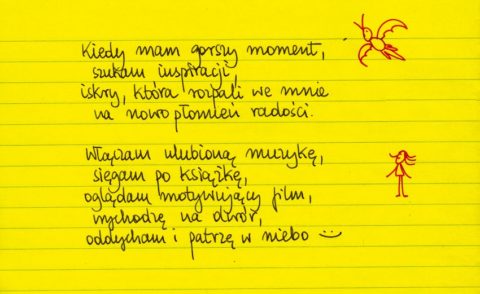 Kiedy mam gorszy moment,
szukam inspiracji,
iskry, która rozpali we mnie
na nowo płomień radości.
Włączam ulubioną muzykę,
sięgam po książkę,
oglądam motywujący film,
wychodzę na dwór,
oddycham i patrzę w niebo :)